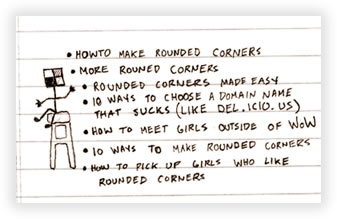 • HOWTO MAKE ROUNDED CORNERS
• MORE ROUNED CORNERS
• ROUNDED CORNERS MADE EASY
• 10 WAYS TO CHOOSE A DOMAIN NAME
THAT SUCKS (LIKE DEL.ICIO.US)
• HOW TO MEET GIRLS OUTSIDE OF WoW
• 10 WAYS TO MAKE ROUNDED CORNERS
• HOW TO PICK UP GIRLS WHO LIKE
ROUNDED CORNERS